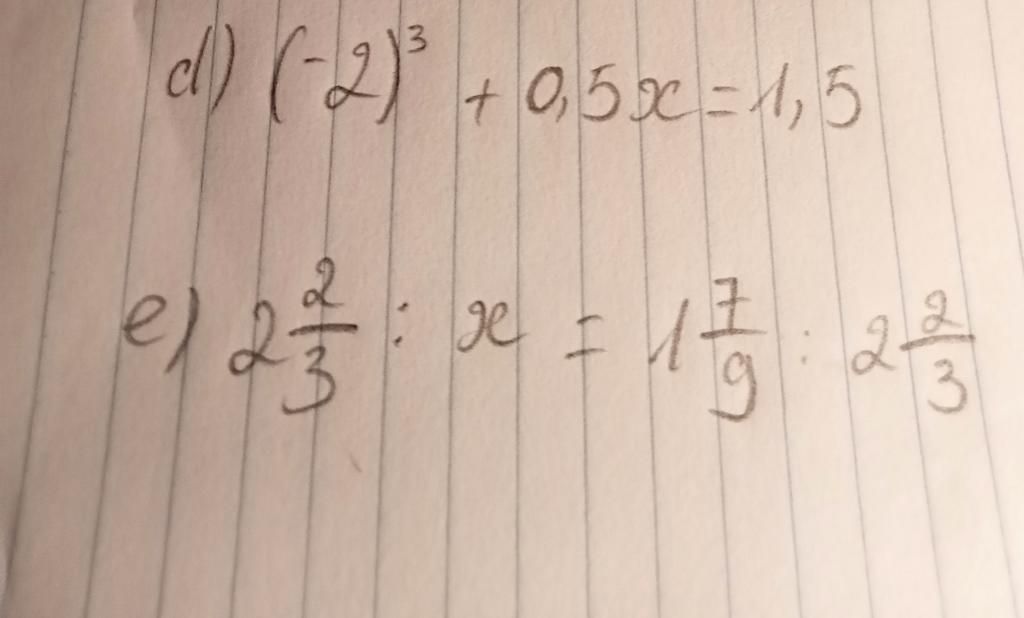 d) (-2)³ + 0,5x = 1,5
e) 2 2/3 : x = 1 7/9 : 2 2/3